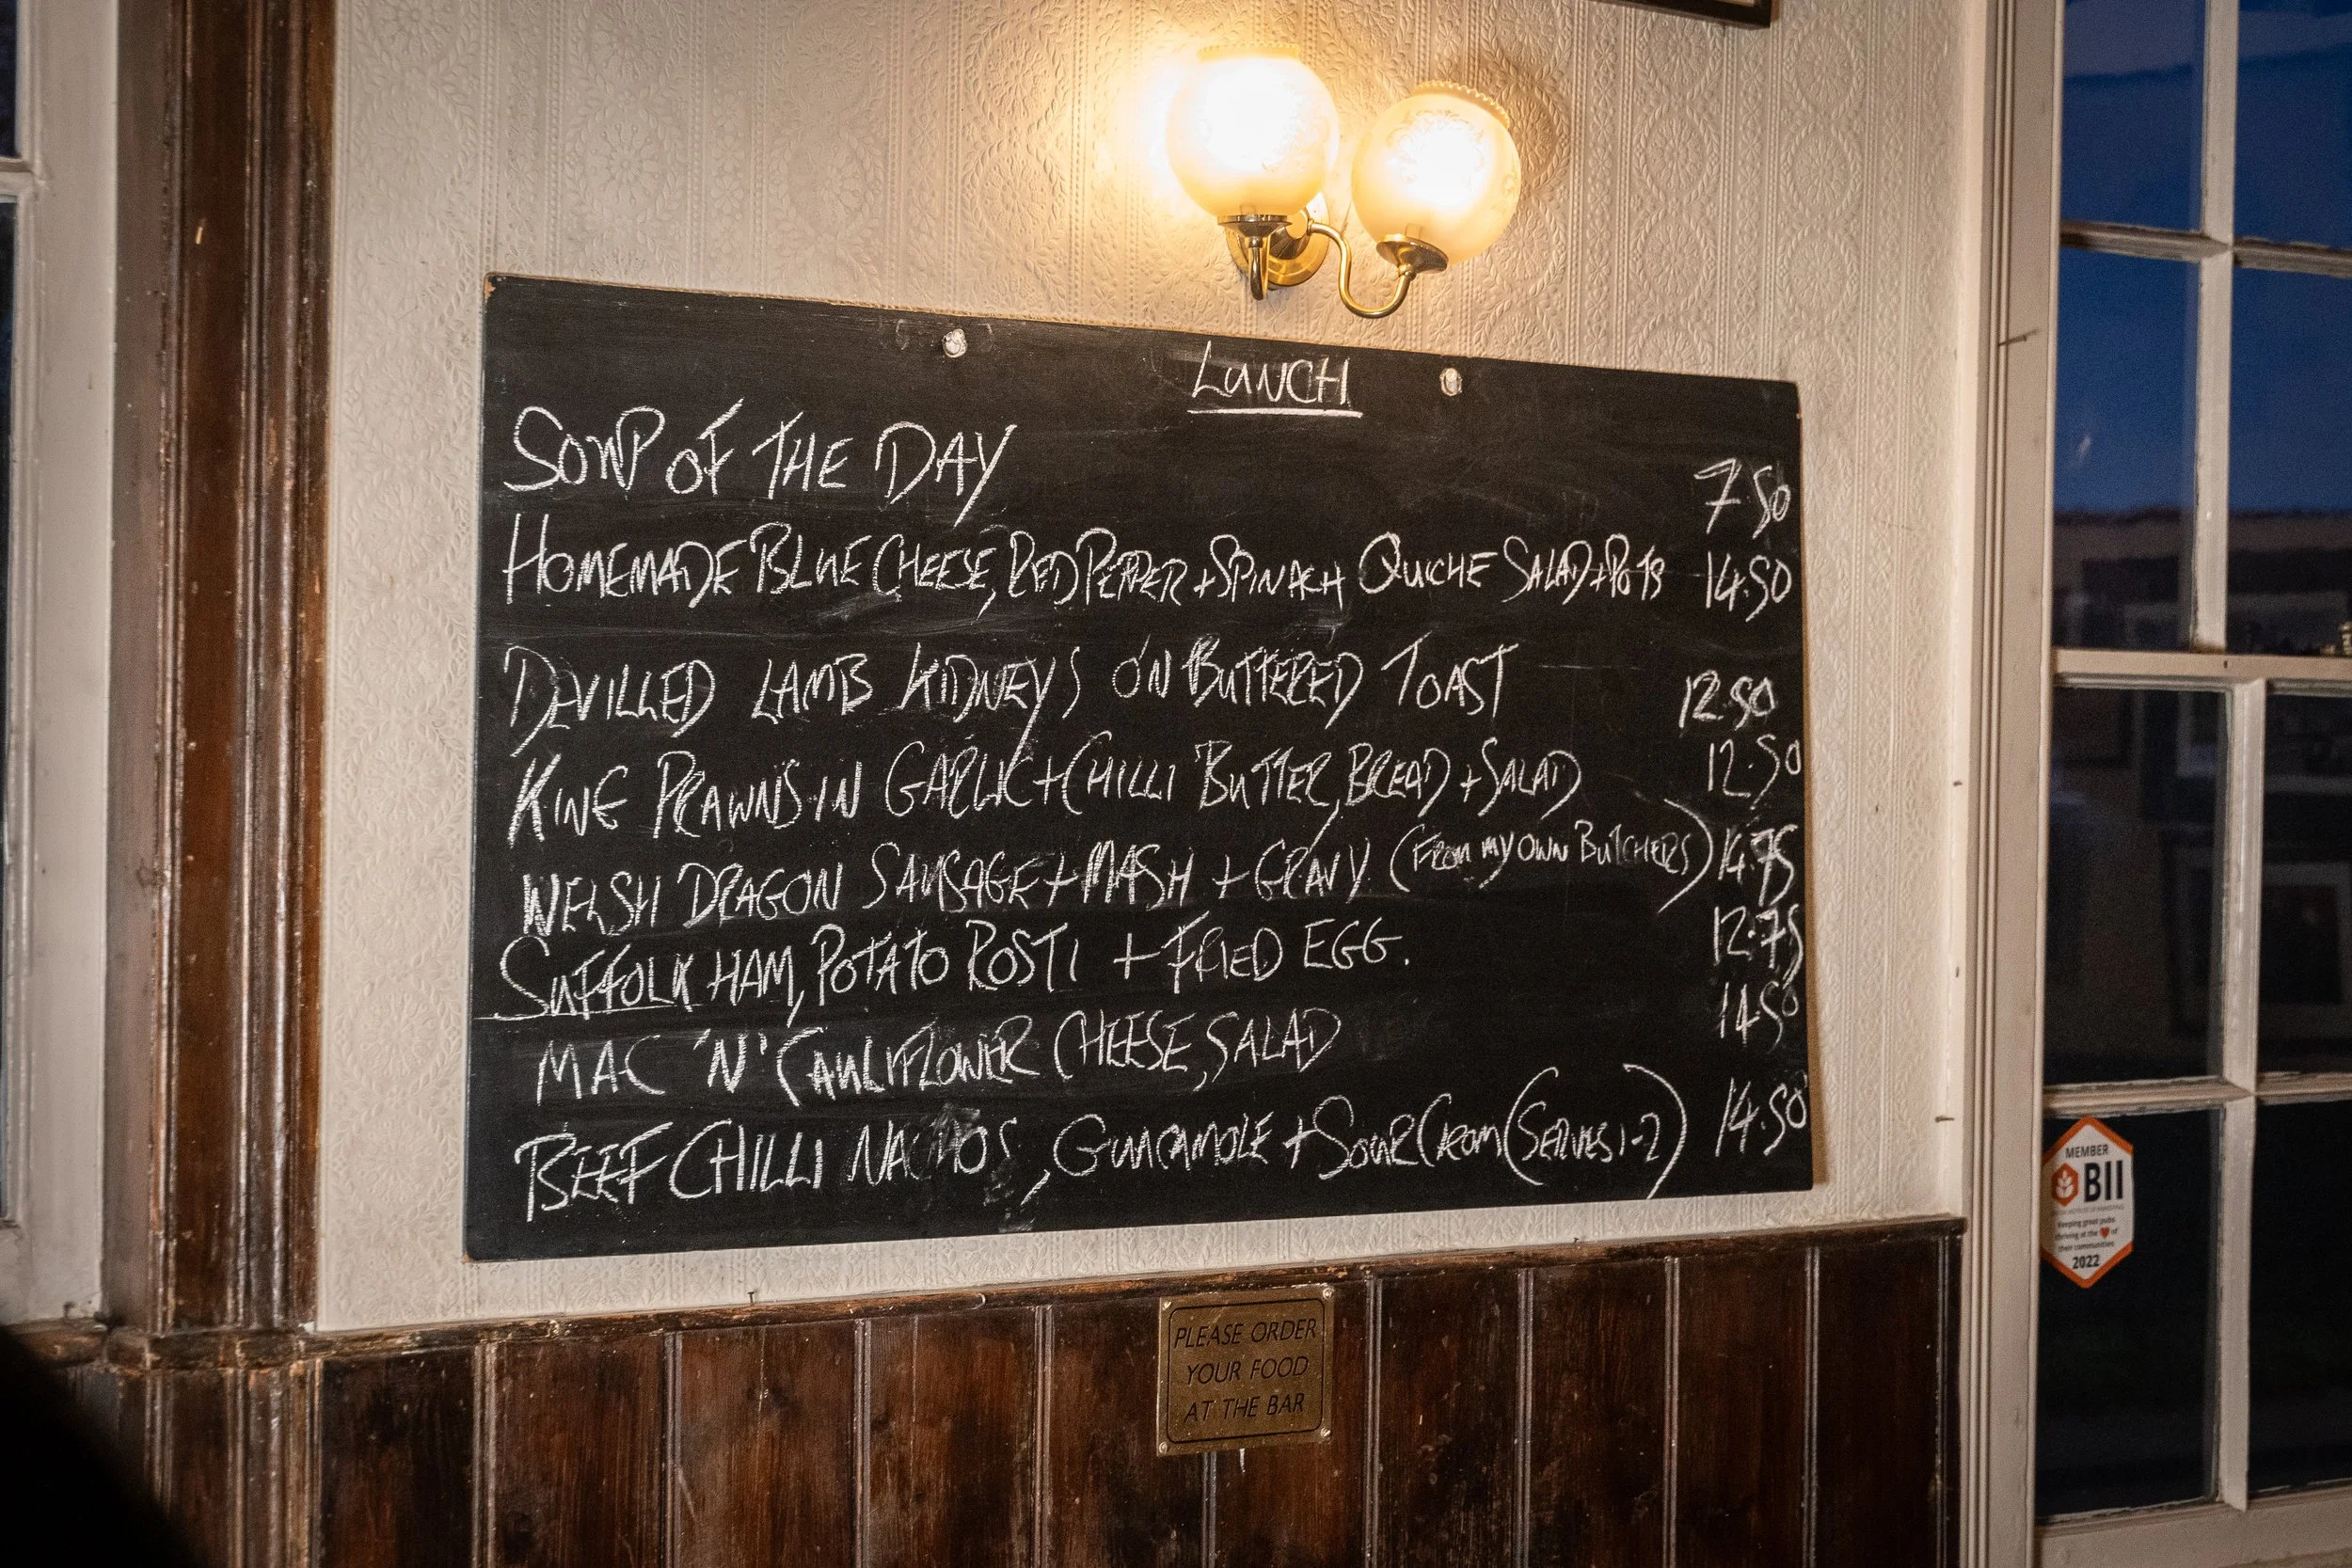 LUNCH
SOUP OF THE DAY 7.50
HOMEMADE BLUE CHEESE, RED PEPPER + SPINACH QUICHE SALAD + POTS 14.50
DEVILLED LAMB KIDNEYS ON BUTTERED TOAST 12.50
KING PRAWNS IN GARLIC + CHILLI BUTTER, BREAD + SALAD 12.50
WELSH DRAGON SAUSAGE + MASH + GRAVY (FROM MY OWN BUTCHERS) 14.75
SUFFOLK HAM, POTATO ROSTI + FRIED EGG. 12.75
MAC 'N' CAULIFLOWER CHEESE, SALAD 14.50
BEEF CHILLI NACHOS, GUACAMOLE + SOUR CREAM (SERVES 1-2) 14.50
PLEASE ORDER
YOUR FOOD
AT THE BAR
MEMBER
BII
Keeping great pubs
thriving at the ❤ of
their communities
2022